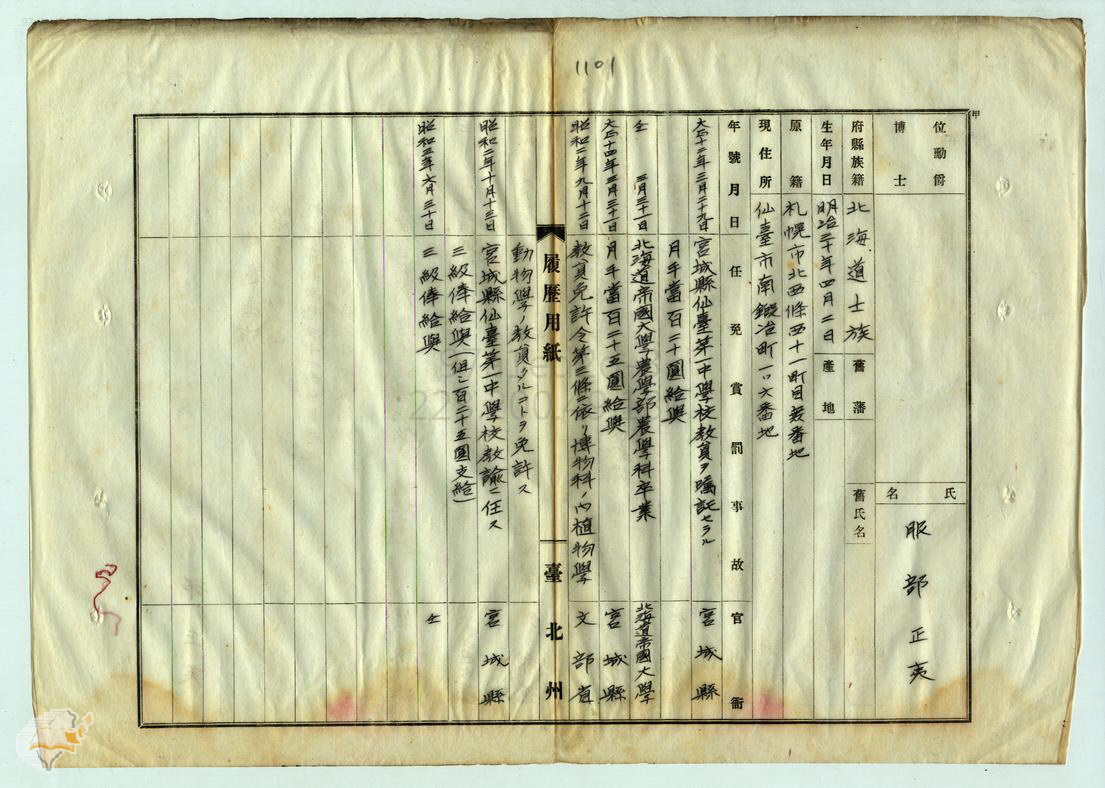 1101
甲
位勳爵
博士
府縣族籍 北海道士族 舊藩 舊氏名
氏名 服部正夷
生年月日 明治三十年四月二日 產地
原籍 札幌市北西條西十一町目番地
現住所 仙臺市南鍛冶町一〇六番地
年號月日 任免賞罰事故 官衙
大正十二年三月二十九日 宮城縣仙臺第一中學校教員ヲ囑託セラル 宮城縣
月手當百二十圓給與
仝 三月三十一日 北海道帝國大學農學部農學科卒業 北海道帝國大學
大正十四年三月三十一日 月手當百二十五圓給與 宮城縣
昭和二年九月十二日 教員免許令第三條ニ依リ博物科ノ內植物學 文部省
履歷用紙 臺北州
動物學ノ教員タルコトヲ免許ス
昭和二年十月十三日 宮城縣仙臺第一中學校教諭ニ任ス 宮城縣
三級俸給與(但シ百二十五圓支給)
昭和三年六月三十日 三級俸給與 仝